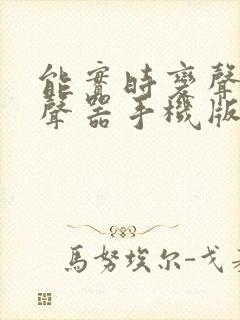 能實時變聲
聲器手機版
馬努埃尔-戈